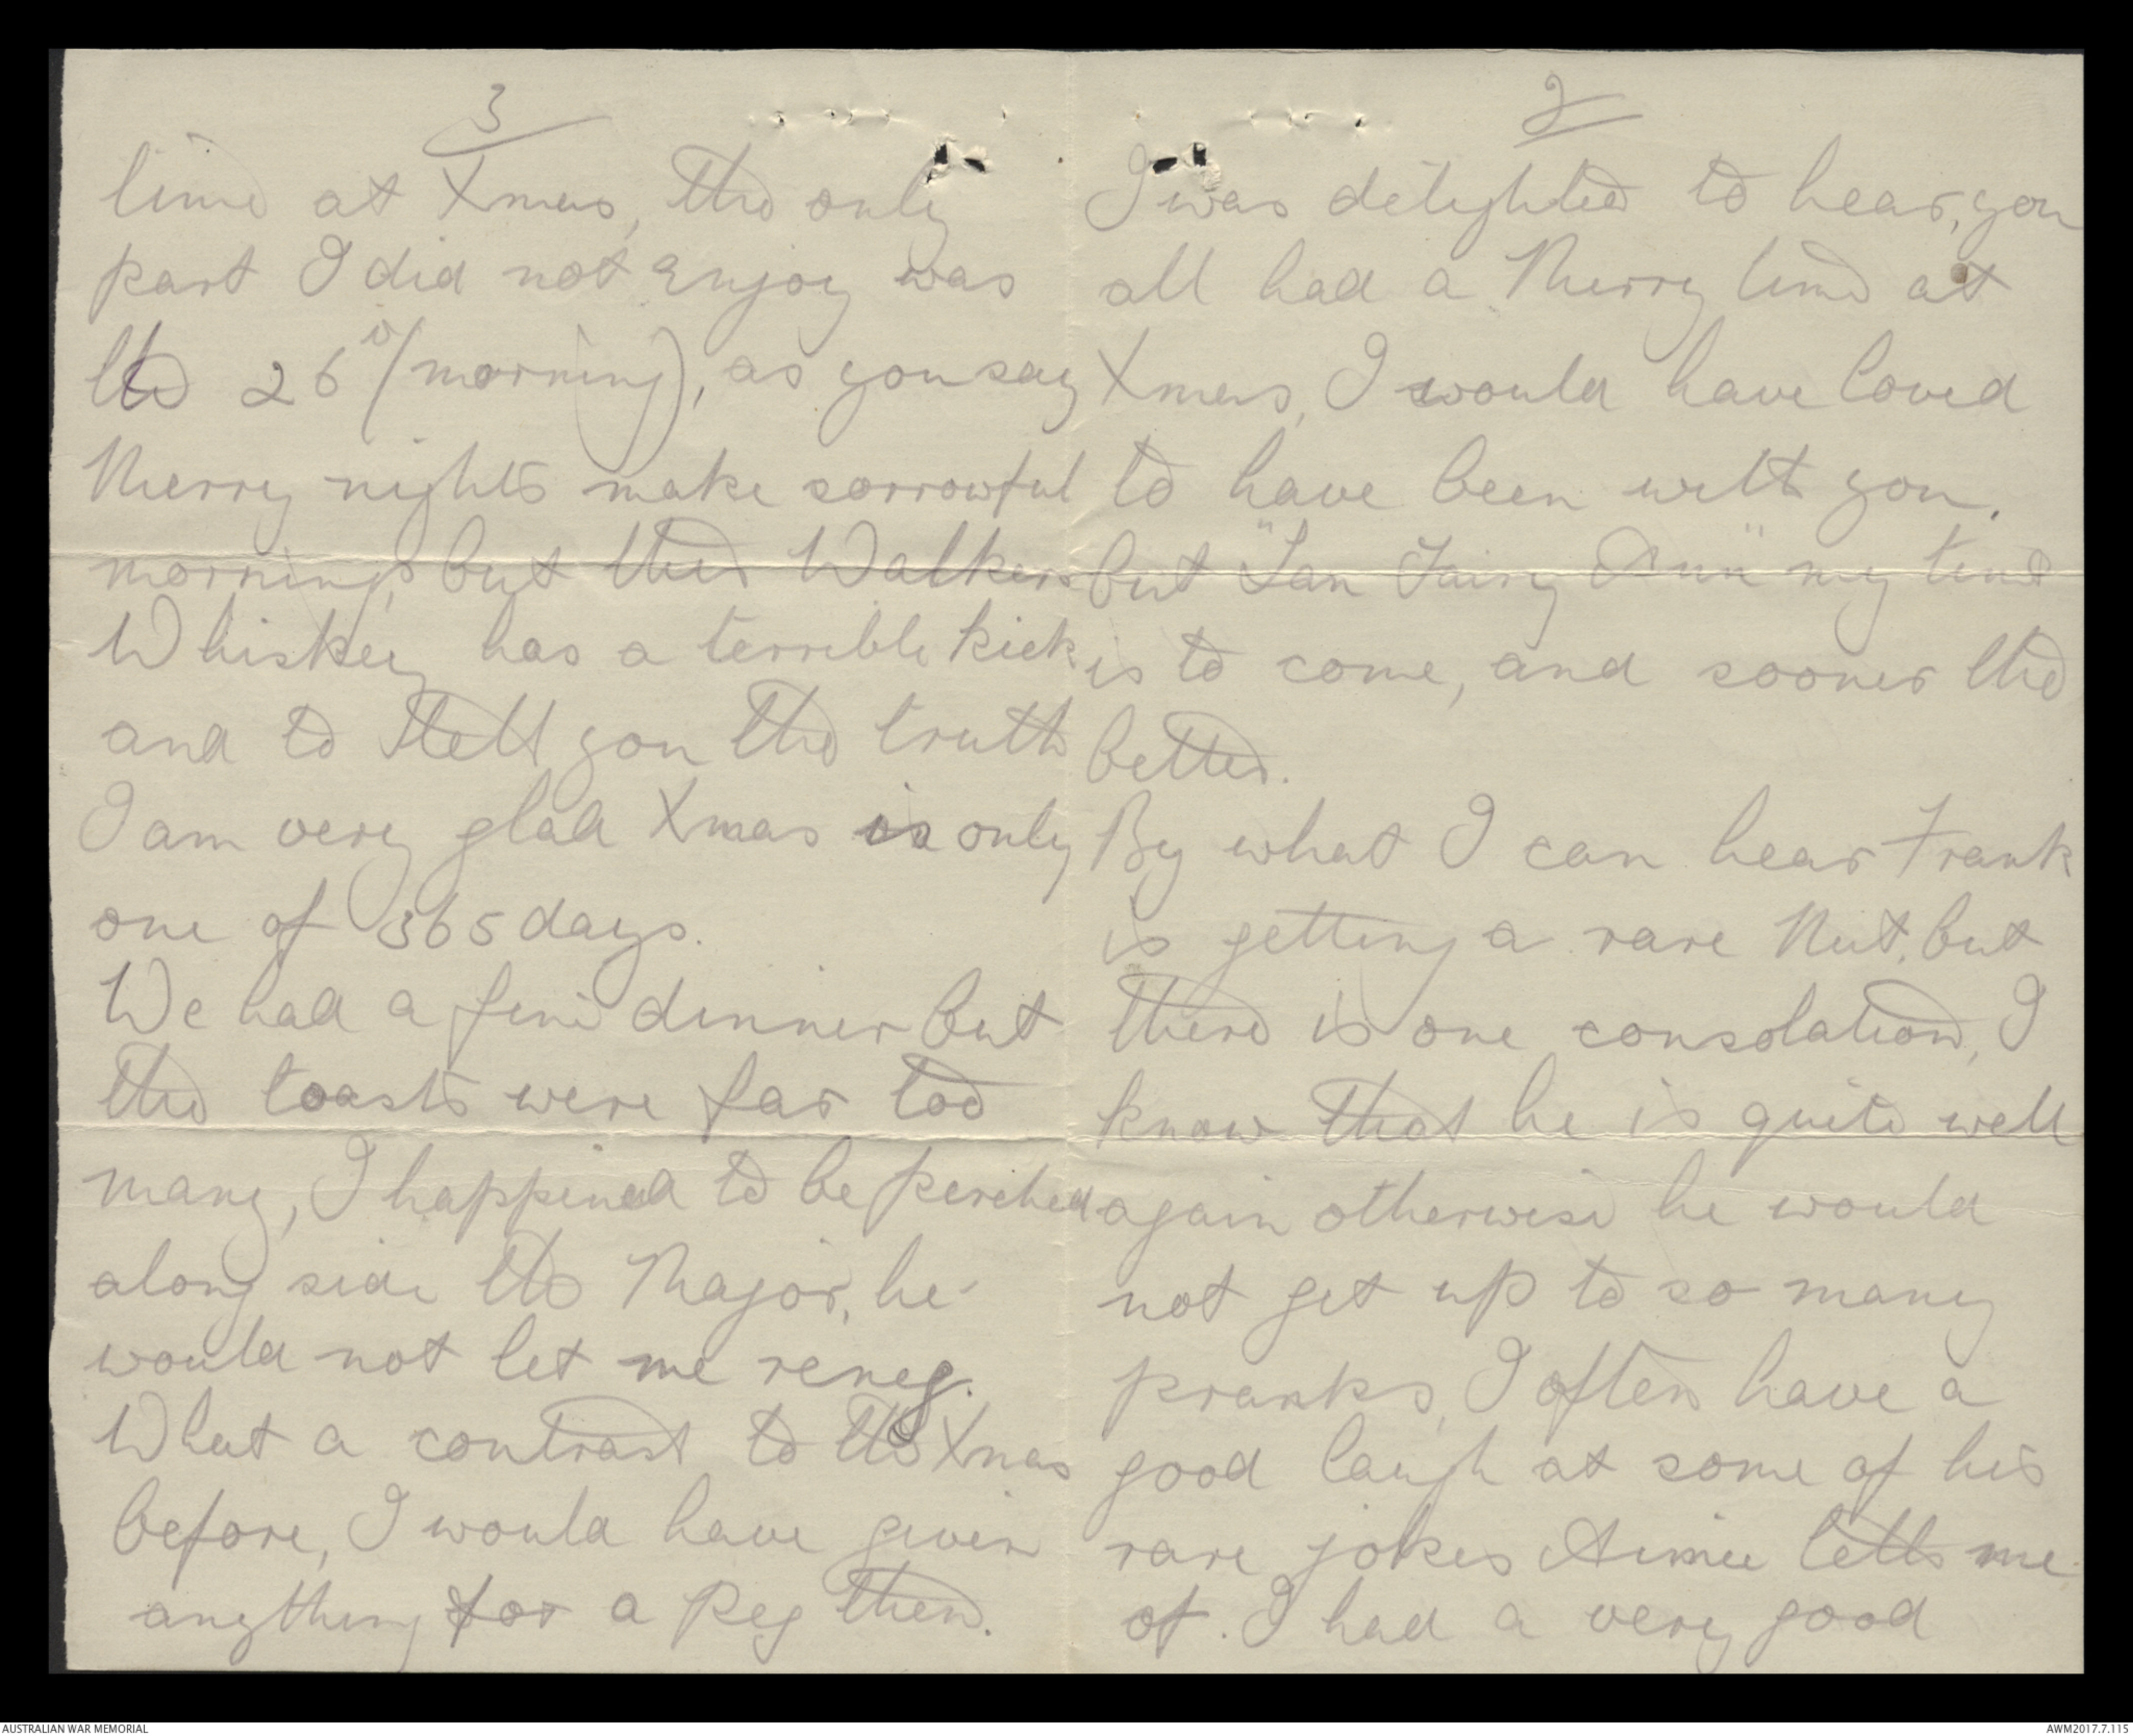 2
I was delighted to hear, you
all had a Merry time at
Xmas, I would have loved
to have been with you.
but "San Fairy Ann" my time
is to come, and sooner the
better.
By what I can hear Frank
is getting a rare Nut, but
there is one consolation, I
know that he is quite well
again otherwise he would
not get up to so many
pranks, I often have a
good laugh at some of his
rare jokes Aimee tells me
of. I had a very good
3
time at Xmas, the only
part I did not enjoy was
the 26th (morning), as you say
Merry nights make sorrowful
mornings, but this Walkers
Whiskey has a terrible kick
and to tell you the truth
I am very glad Xmas is only
one of 365 days.
We had a fine dinner but
the toasts were far too
many, I happened to be perched
along side the Major, he
would not let me reneg.
What a contrast to the Xmas
before, I would have given
anything for a Peg then.
AUSTRALIAN WAR MEMORIAL
AWM2017.7.115